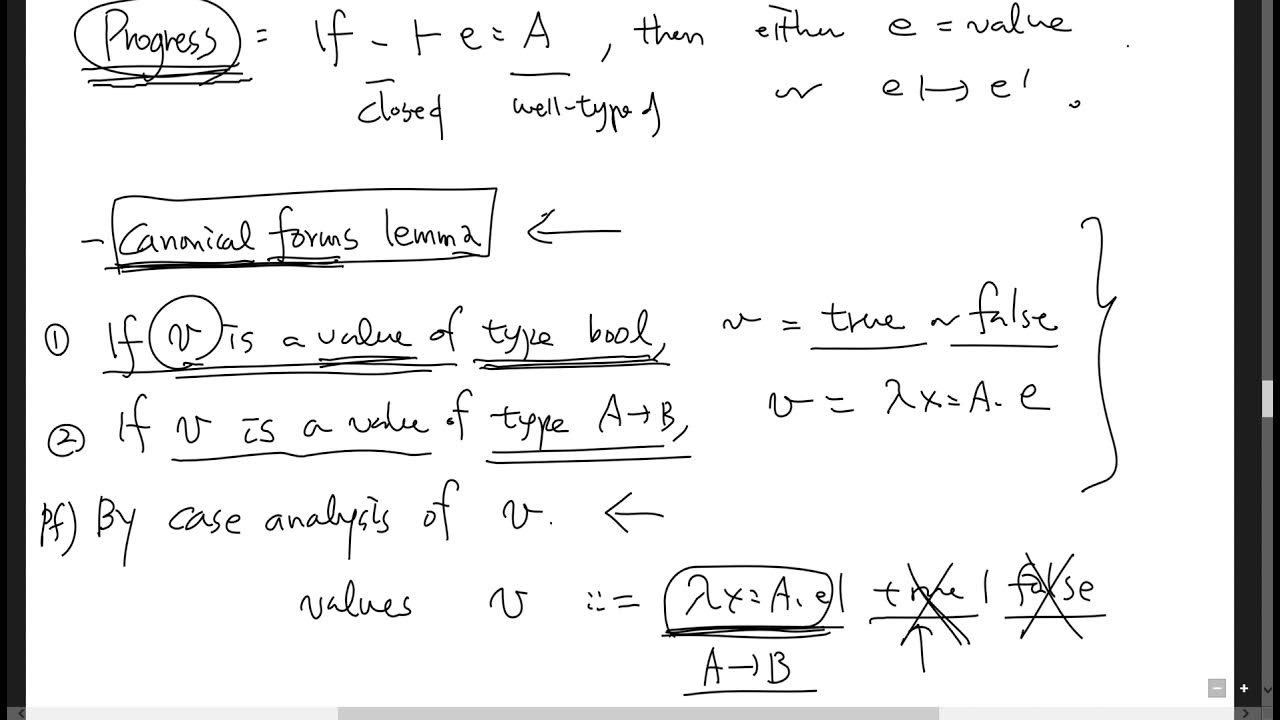 Progress : If · ⊢ e : A , then either e = value
closed well-typed or e ↦ e' .
- Canonical forms lemma ←
① If v is a value of type bool, v = true or false
② If v is a value of type A→B, v = λx:A. e
Pf) By case analysis of v. ←
values v ::= λx:A. e | true | false
↑
A→B